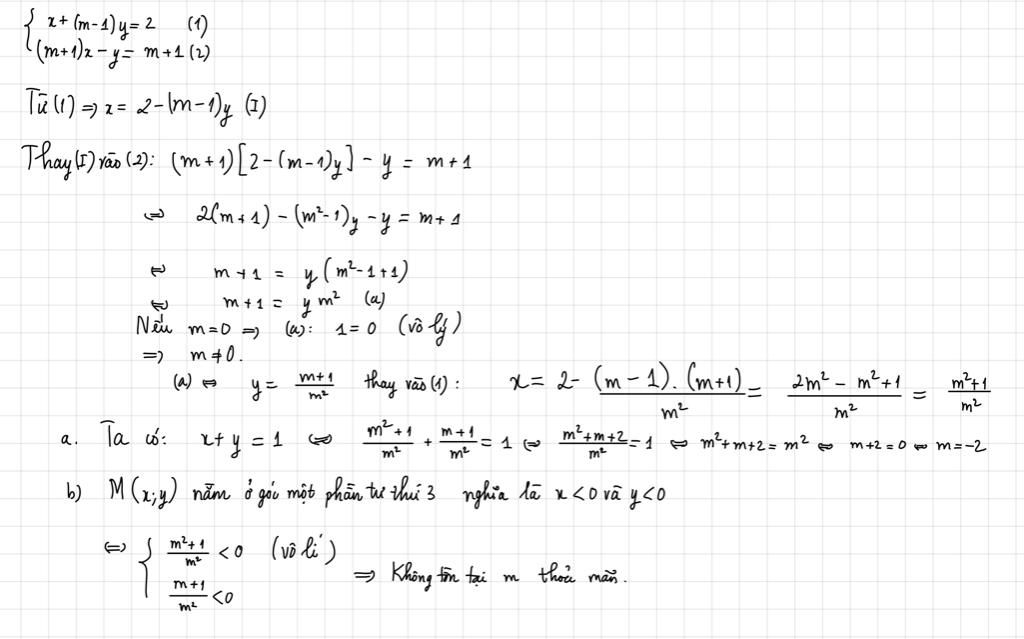 { x + (m-1)y = 2 (1)
(m+1)x - y = m+1 (2)
Từ (1) ⇒ x = 2-(m-1)y (I)
Thay (I) vào (2): (m+1)[2-(m-1)y] - y = m+1
⇔ 2(m+1) - (m²-1)y - y = m+1
⇔ m+1 = y(m²-1+1)
⇔ m+1 = y m² (a)
Nếu m=0 ⇒ (a): 1=0 (vô lý)
⇒ m≠0.
(a) ⇔ y = (m+1)/m² thay vào (1): x = 2 - (m-1).(m+1)/m² = (2m²-m²+1)/m² = (m²+1)/m²
a. Ta có: x+y=1 ⇔ (m²+1)/m² + (m+1)/m² = 1 ⇔ (m²+m+2)/m² = 1 ⇔ m²+m+2=m² ⇔ m+2=0 ⇔ m=-2
b) M(x;y) nằm ở góc một phần tư thứ 3 nghĩa là x<0 và y<0
⇔ { (m²+1)/m² < 0 (vô lí)
(m+1)/m² < 0 ⇒ Không tồn tại m thoả mãn.